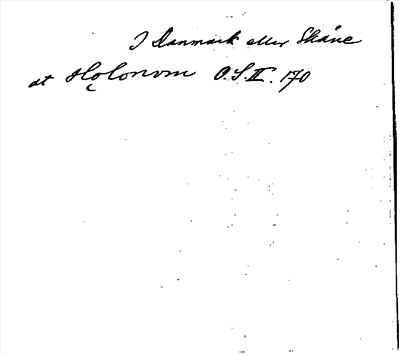 I Danmark eller Skåne
at Hǫlonom O.S.II. 170